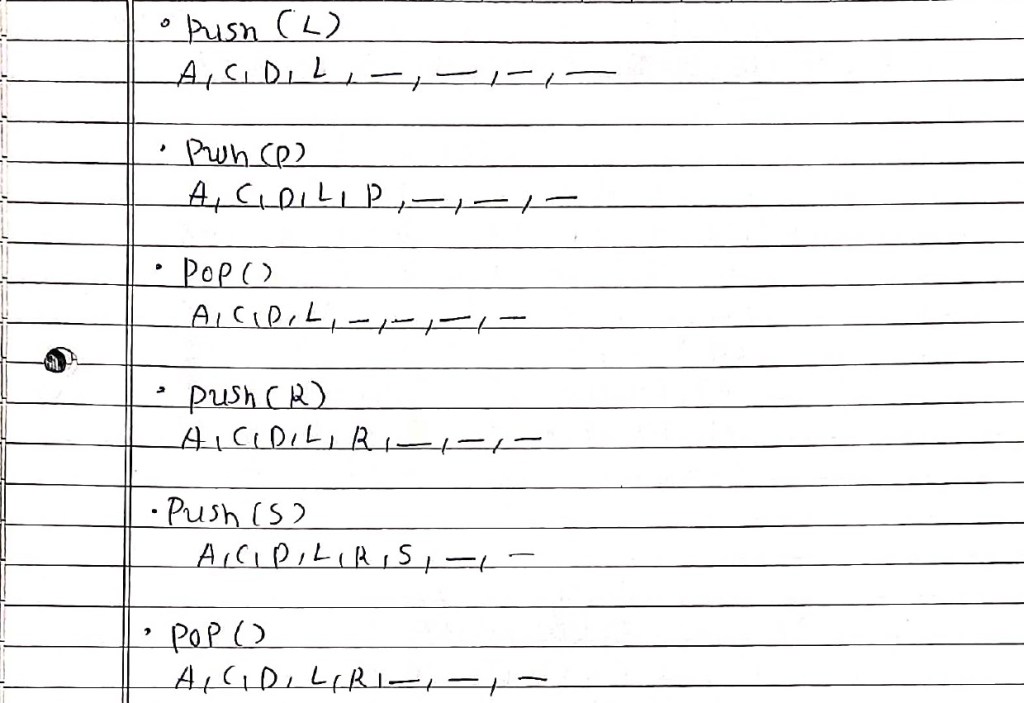 • Push (L)
A, C, D, L, —, —, —, —
• Push (P)
A, C, D, L, P, —, —, —
• Pop ()
A, C, D, L, —, —, —, —
• Push (R)
A, C, D, L, R, —, —, —
• Push (S)
A, C, D, L, R, S, —, —
• Pop ()
A, C, D, L, R, —, —, —